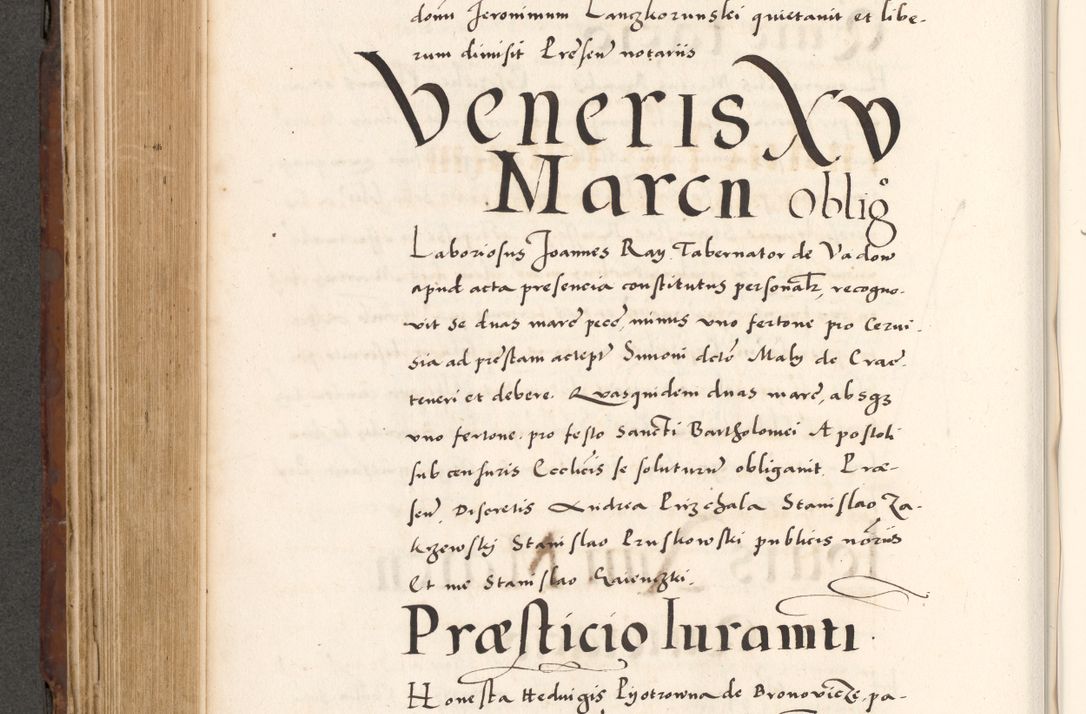 donu Jeronimum Lanczkorunski quietauit et libe-
rum dimisit Presen notariis
Veneris XV
Marcii obligo
Laboriosus Joannes Ray Tabernator de Vadow
apud acta presencia constitutus personalr, recogno-
uit se duas marc pecc, minus vno fertone pro Cerui-
sia ad prestam accept Simoni dcto Maly de Crac
teneri et debere. Quasquidem duas marc, absqz
vno fertone pro festo Sancti Bartholomei Apostoli
sub censuris Ecclicis se soluturum obligauit. Præ-
sen, Discretis Andrea Przechala Stanislao Za-
krzewski Stanislao Pruskowski publicis noriis
Et me Stanislao
Præsticio Iuramti
Honesta Heduigis Pyotrowna de Bronovicze, pa-